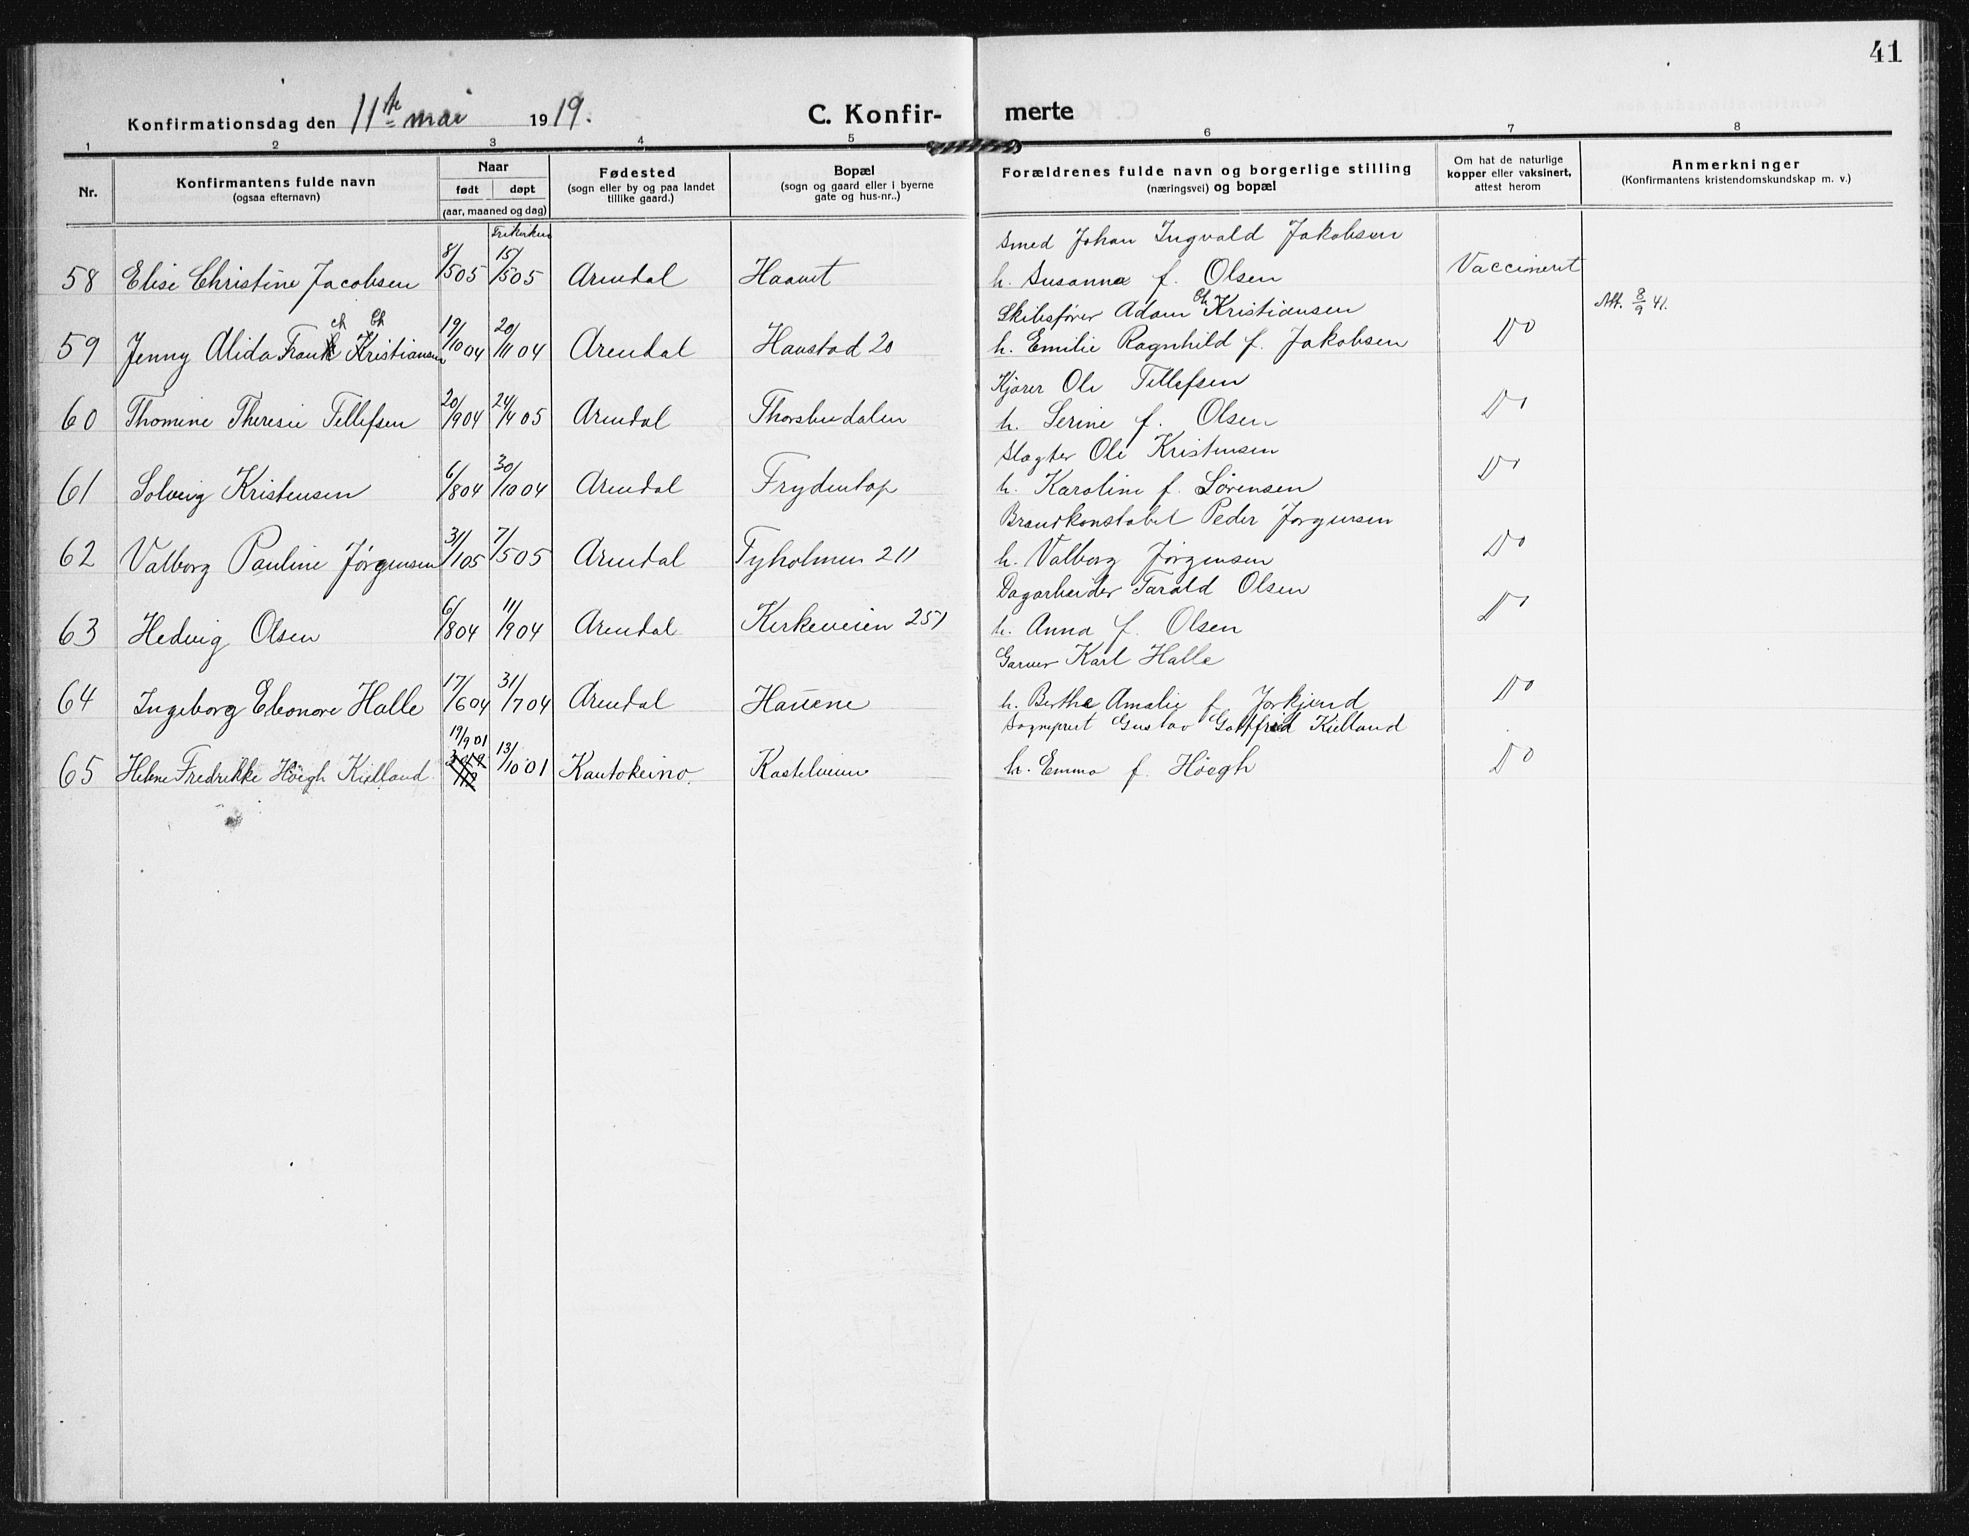 41
Konfirmationsdag den 11te mai 1919.
C. Konfir- merte
1 2 3 4 5 6 7 8
Nr.
Konfirmantens fulde navn
(ogsaa efternavn)
Naar
født døpt
(aar, maaned og dag)
Fødested
(sogn eller by og paa landet
tillike gaard.)
Bopæl
(sogn og gaard eller i byerne
gate og hus-nr..)
Forældrenes fulde navn og borgerlige stilling
(næringsvei) og bopæl
Om hat de naturlige
kopper eller vaksinert,
attest herom
Anmerkninger
(Konfirmantens kristendomskundskap m. v.)
Frikirken
Smed Johan Ingvald Jakobsen
58 Elise Christine Jacobsen 8/5 05 15/5 05 Arendal Haavet h. Susanna f. Olsen Vaccinert
Skibsfører Adam Ch Kristiansen Att. 8/9 41.
59 Jenny Alida Franck Christiansen 19/10 04 20/11 04 Arendal Haustad 20 h. Emilie Ragnhild f. Jakobsen Do
Kjører Ole Tellefsen
60 Thomine Theresie Tellefsen 20/9 04 24/4 05 Arendal Thorsbudalen h. Serine f. Olsen Do
Slagter Ole Kristensen
61 Solveig Kristensen 6/8 04 30/10 04 Arendal Frydentop h. Karoline f. Sørensen Do
Brandkonstabel Peder Jørgensen
62 Valborg Pauline Jørgensen 31/1 05 7/5 05 Arendal Tyholmen 211 h. Valborg Jørgensen Do
Dagarbeider Tarald Olsen
63 Hedvig Olsen 6/8 04 11/9 04 Arendal Kirkeveien 251 h. Anna f. Olsen Do
Garver Karl Halle
64 Ingeborg Eleonore Halle 17/6 04 31/7 04 Arendal Havene h. Berthe Amalie f. Jorkjend Do
Sogneprest Gustav Gottfred Kielland
65 Helene Fredrikke Höegh Kielland 19/9 01 13/10 01 Kautokeino. Kastelveien h. Emma f. Höegh Do